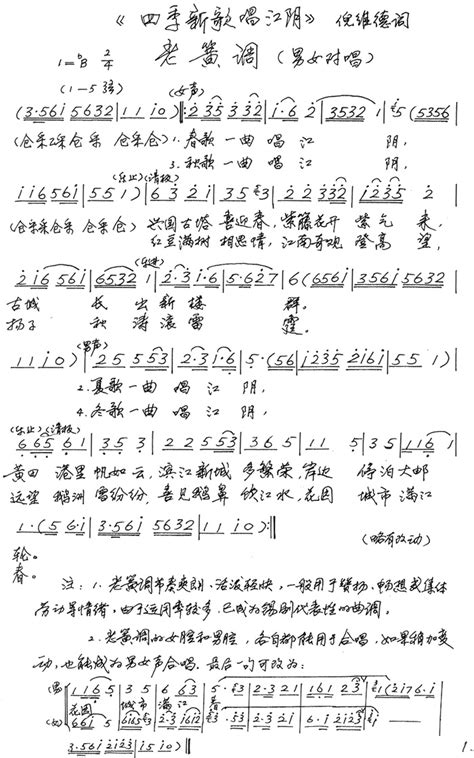 《四季新歌唱江阴》 倪维德词
1=♭B 2/4 老簧调 (男女对唱)
(1—5 弦) (女声)
(3·56i 5632|11 i0)‖:2 35 332|i·6 2|3532 1|5 (5356
(仓采乙采仓采 仓采仓) 1. 春歌一曲 唱 江 阴,
3. 秋歌一曲 唱 江 阴,
(乐止)(清板)
ii6 56i|55 1)|6 3 2i|35 3|2 2 332|i235 2|
(仓采采仓采 仓采仓) 兴国古塔 喜迎春, 紫藤花开 紫气 来,
红豆满树 相思情, 江南奇观 登高 望,
(乐进)
2i6 56i|6532 1|2·3 i·6|5·627|6(656i|356i 5632|
古城 长出新楼 群。
扬子 秋涛滚雷 霆。
(男声)
11 i0)|25 553|2·3 1·6|5·(56|i235 2i6i|55 1)|
2. 夏歌一曲 唱 江 阴,
4. 冬歌一曲 唱 江 阴,
(乐止)(清板)
665 61|35 3|22 553|36 5|11 5|35 116|
黄田 港里 帆如云, 滨江新城 多繁荣, 岸边 停泊大邮
远望 鹅洲 雪纷纷, 喜见鹅鼻 饮江水, 花园 城市 满江
1·(5 6·i|3·56i 5632|11 i0):‖
(略有改动)
轮。
春。
注: 1. 老簧调节奏爽朗、活泼轻快, 一般用于赞扬、畅想或集体
劳动等情绪, 由于运用率较多, 已成为锡剧代表性的曲调。
2. 老簧调的女腔和男腔, 各自都能用于合唱, 如果稍加变
动, 也能成为男女声合唱, 最后一句可改为:
(男) 116 5|35 663|5·3|2·3 21|161 23|1(2i76·i|
花园 城市 满江 春
(女)
3·56i 2i23|i5 i0)‖
1.